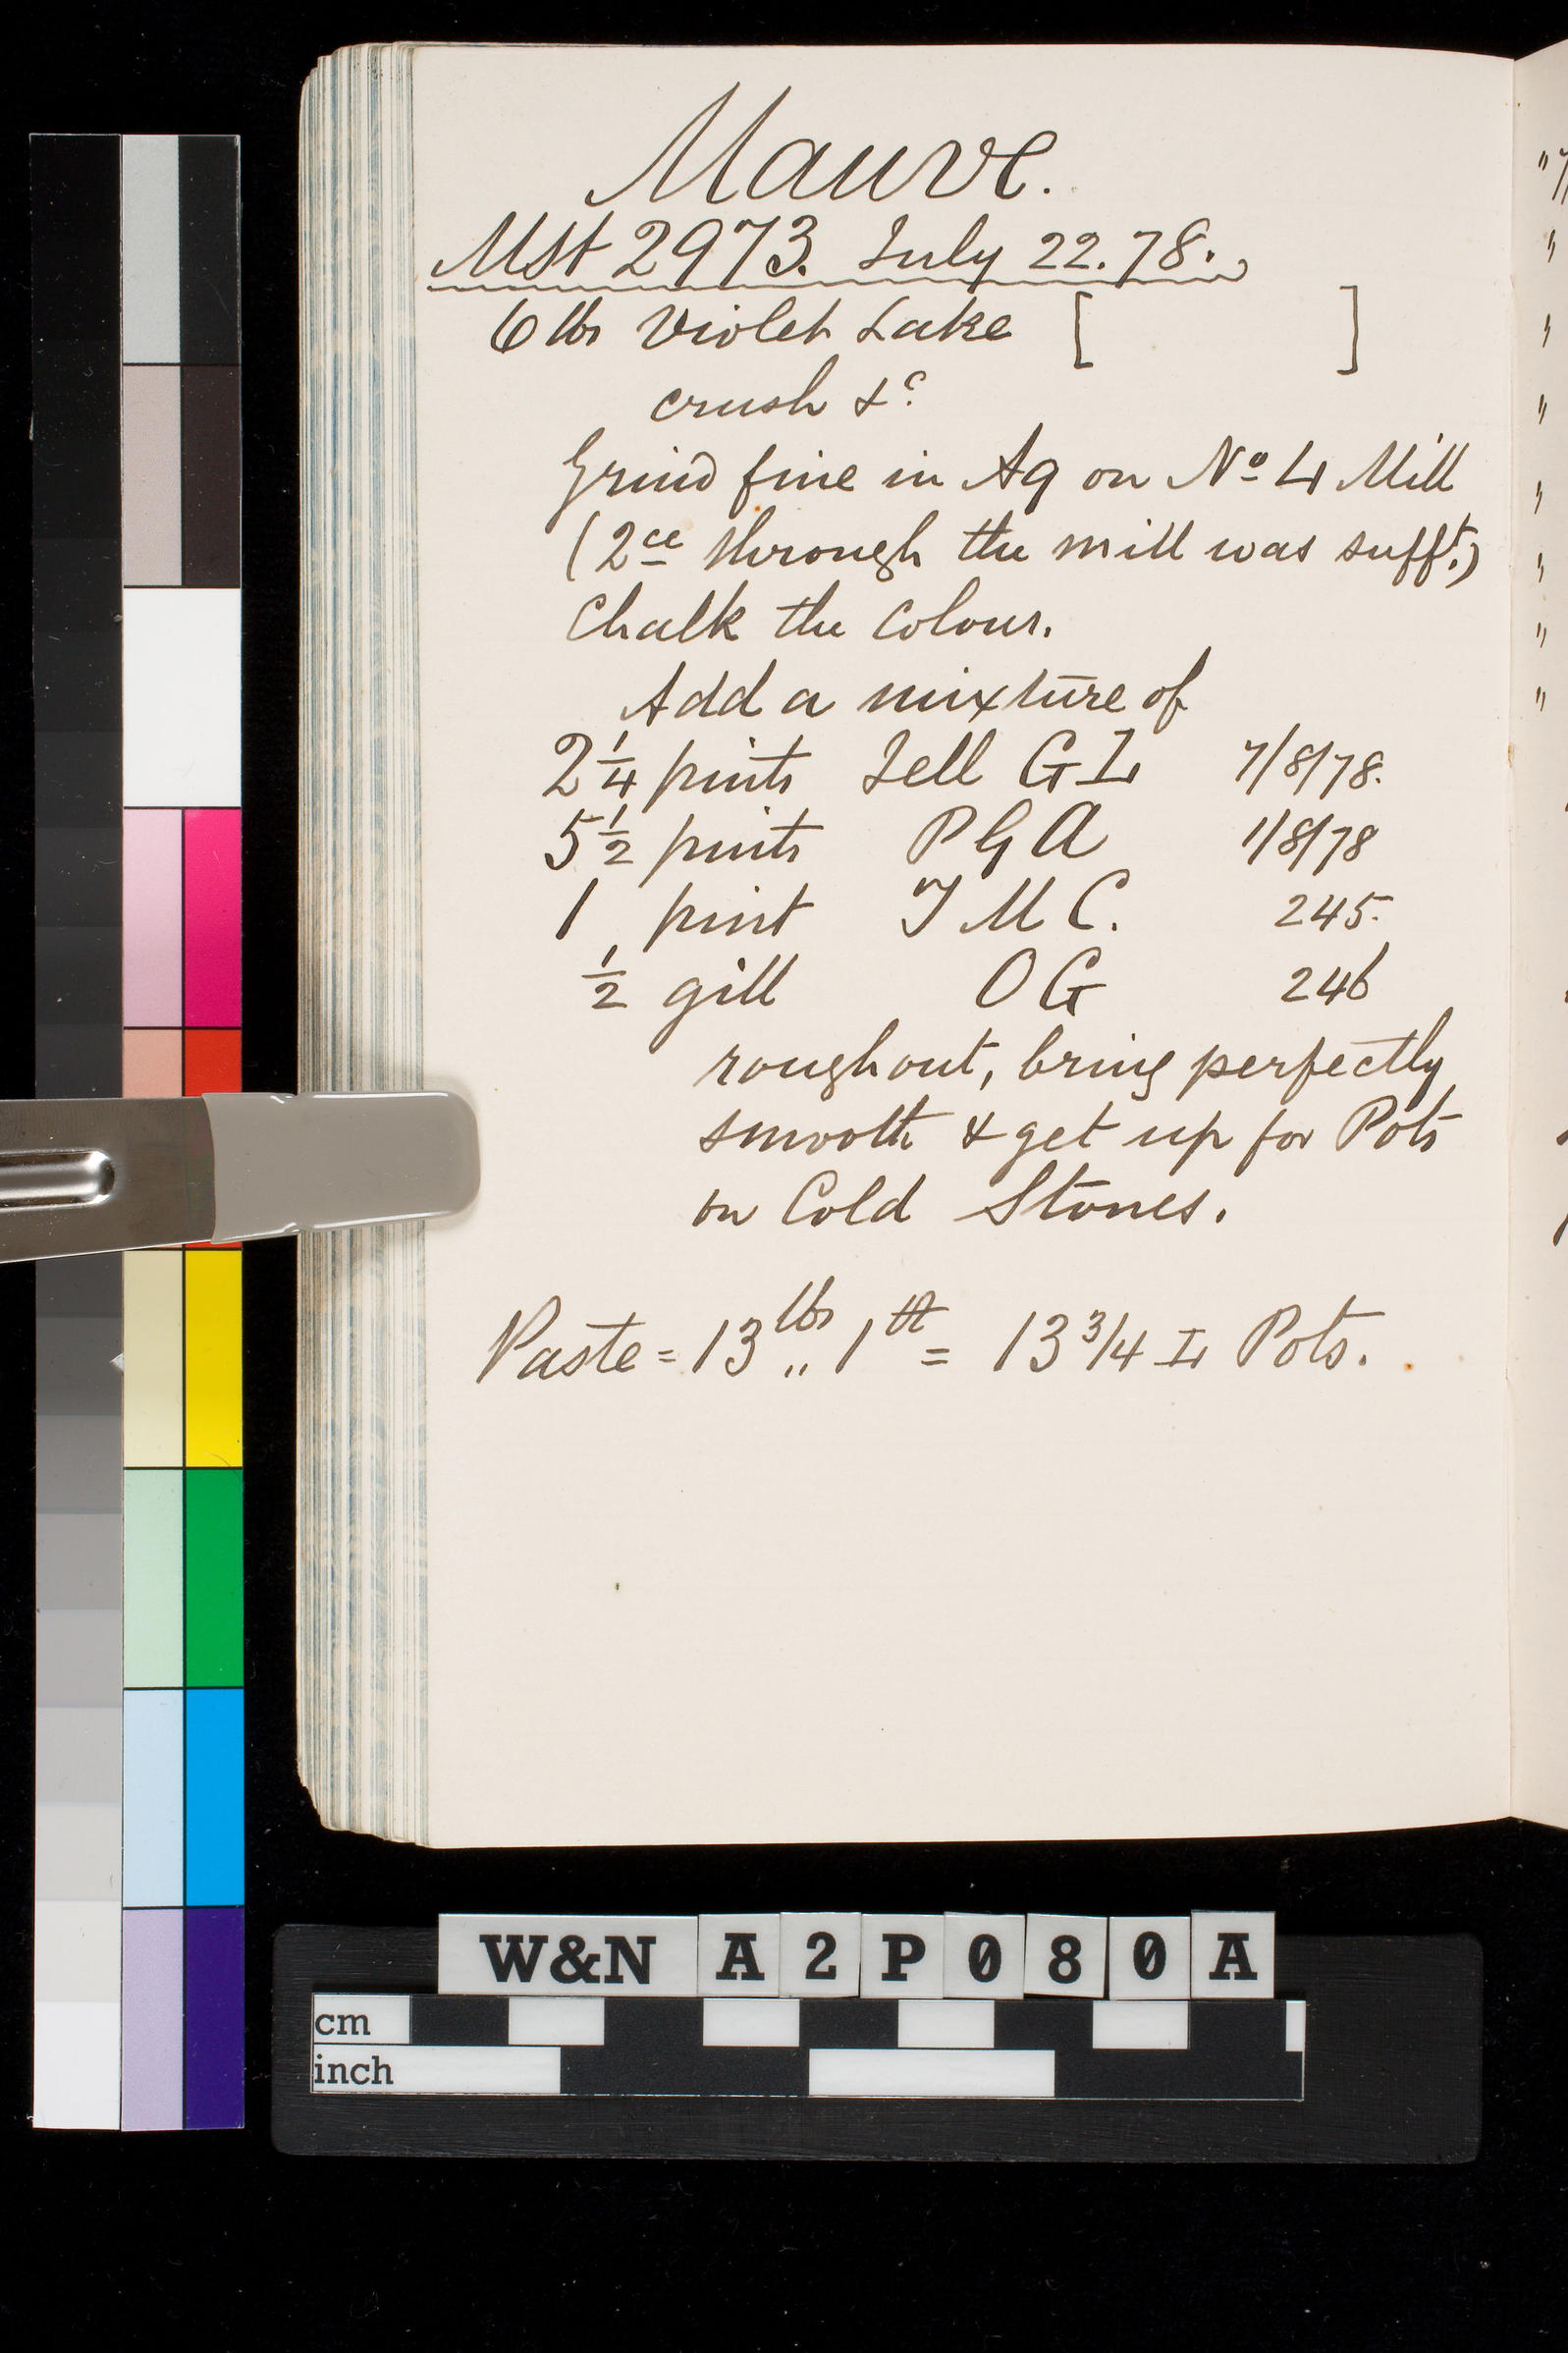 Mauve.
Mst 2973. July 22.78.
6 lbs Violet Lake [ ]
crush &c
Grind fine in Aq on No 4 Mill
(2ce through the mill was sufft.)
Chalk the Colour.
Add a mixture of
2 1/4 pints Jell GL 7/8/78.
5 1/2 pints PGA 1/8/78
1 pint JMC. 245.
1/2 gill OG 246
rough out, bring perfectly
smooth & get up for Pots
on Cold Stones.
Paste = 13 lbs ,, 1 = 13 3/4 L Pots.
W&N A2P080A
cm
inch